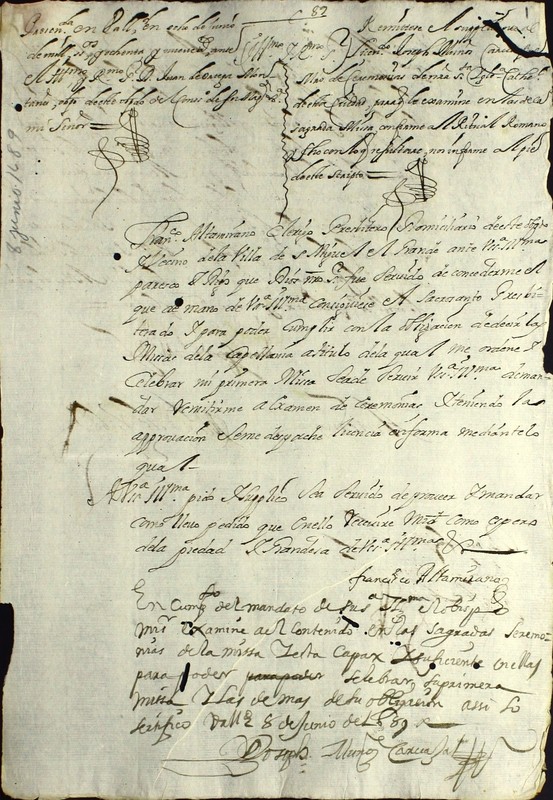 82
en Vall. en ocho de Junio
de mil seis.os y ochenta y nueve a.s ante
el Illmo y Rmo S.r D. Juan de Ortega Mon-
tañes, mi Sr obispo de Mich.n del Consejo de Su Mag.d
mi Señor =
Illmo y Rmo S.r
Remitese el suplicante al
Licen.do Joseph Muñoz Garcia
Mro de Ceremonias de nra S.ta Iglesia Cathe.l
de esta Ciudad para q. le examine en las de la
sagrada Missa, conforme al Ritual Romano
y fho con lo q. resultare, nos informe al pie
de este scripto =
8 junio 1689
Fran.co Altamirano Clerigo Presbitero Domiciliario de este Obpdo
y Vecino de la Villa de S. Miguel el Grande ante Vs.a Ill.ma
paresco y Digo que Dios nro S.r fue servido de concederme el
que de mano de Vs.a Ill.ma consiguiese el Sacro santo Presbi-
terado y para poder cumplir con la obligacion de desir las
Missas de la Capellania a titulo de la qual me ordene y
Celebrar mi primera Missa Se a de Servir Vs.a Ill.ma de man-
dar remitirme a Examen de Ceremonias y teniendo la
aprovacion Se me despache licencia en forma mediante lo
qual —
A Vs.a Ill.ma pido y suplico Sea Servido de proveer y mandar
como llevo pedido que en ello recivire mrd como espero
de la piedad y Grandesa de Vs.a Ill.ma
Francisco Altamirano
En Cump.to del mandato de su S.a Ill.ma el obispo
mi S.r examine a el contenido en las sagradas seremo-
nias de la missa y esta capax y suficiente en ellas
para poder para poder selebrar su primera
missa y las demas de su obligacion assi lo
sertifico Vall.d 8 de Junio de 1689 a.s
Joseph Muñoz Garcia